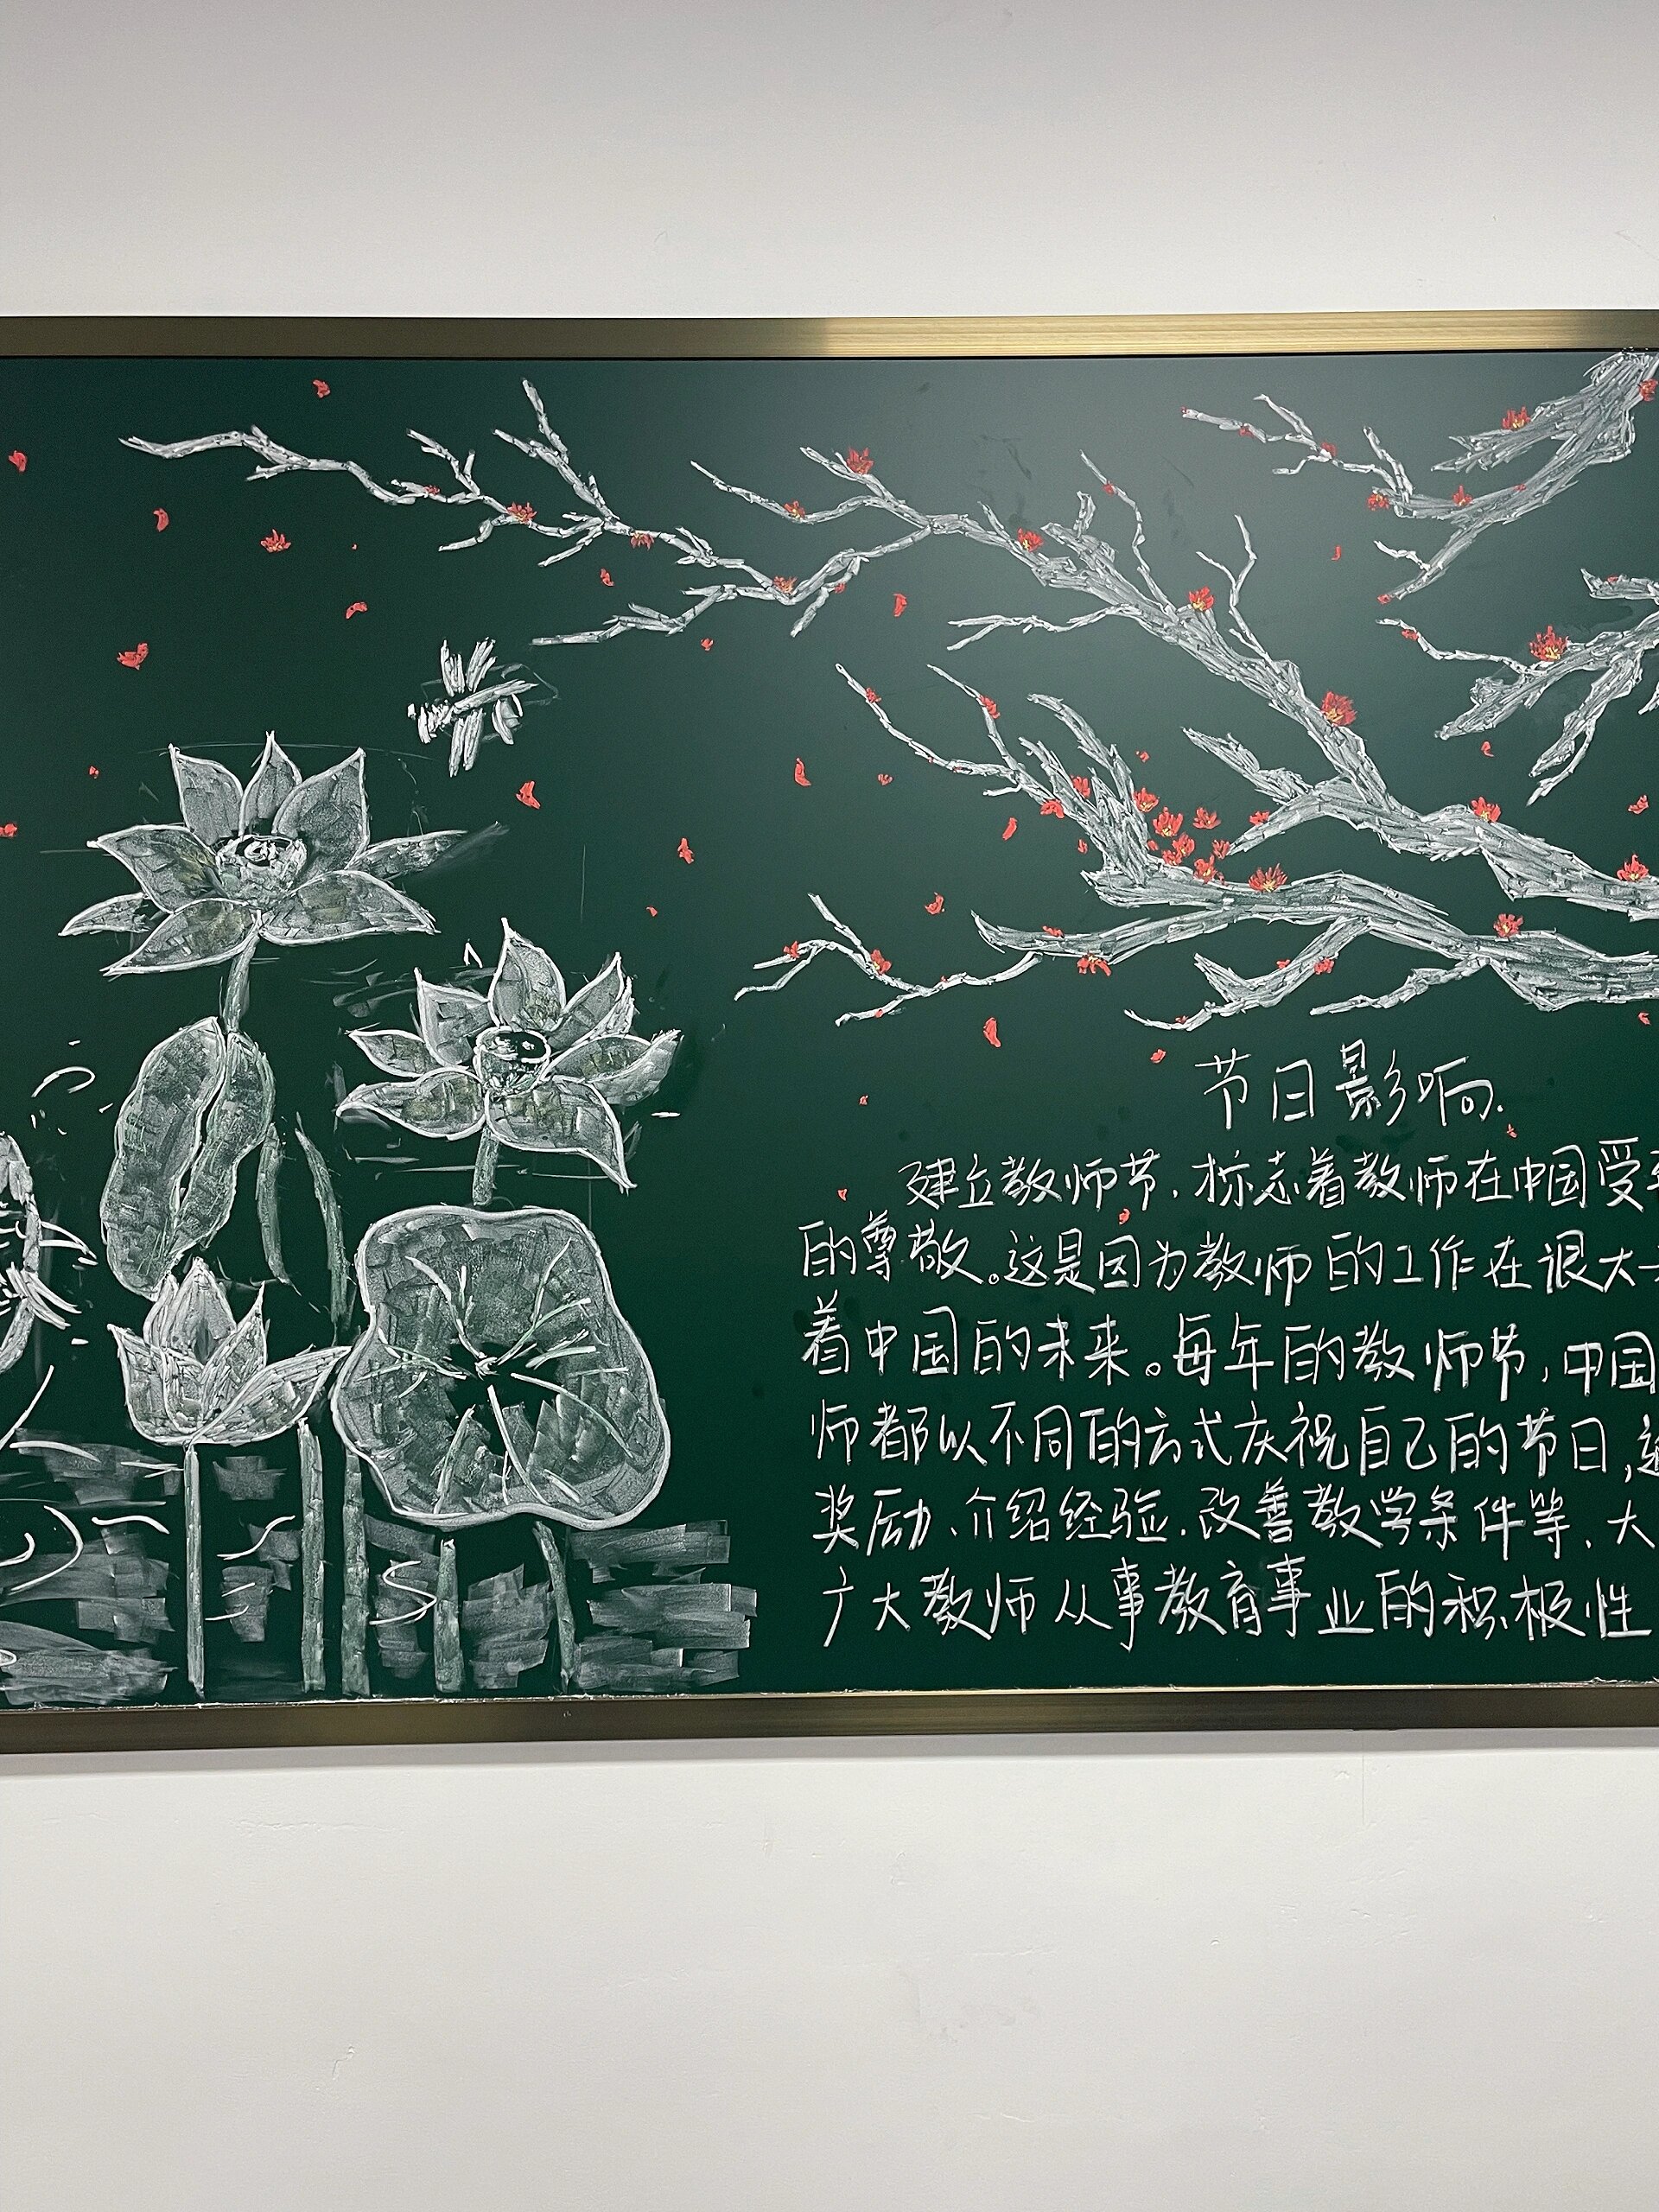 节日影响.
建立教师节，标志着教师在中国受
的尊敬。这是因为教师的工作在很大
着中国的未来。每年的教师节，中国
师都以不同的方式庆祝自己的节日，
奖励、介绍经验、改善教学条件等、大
广大教师从事教育事业的积极性